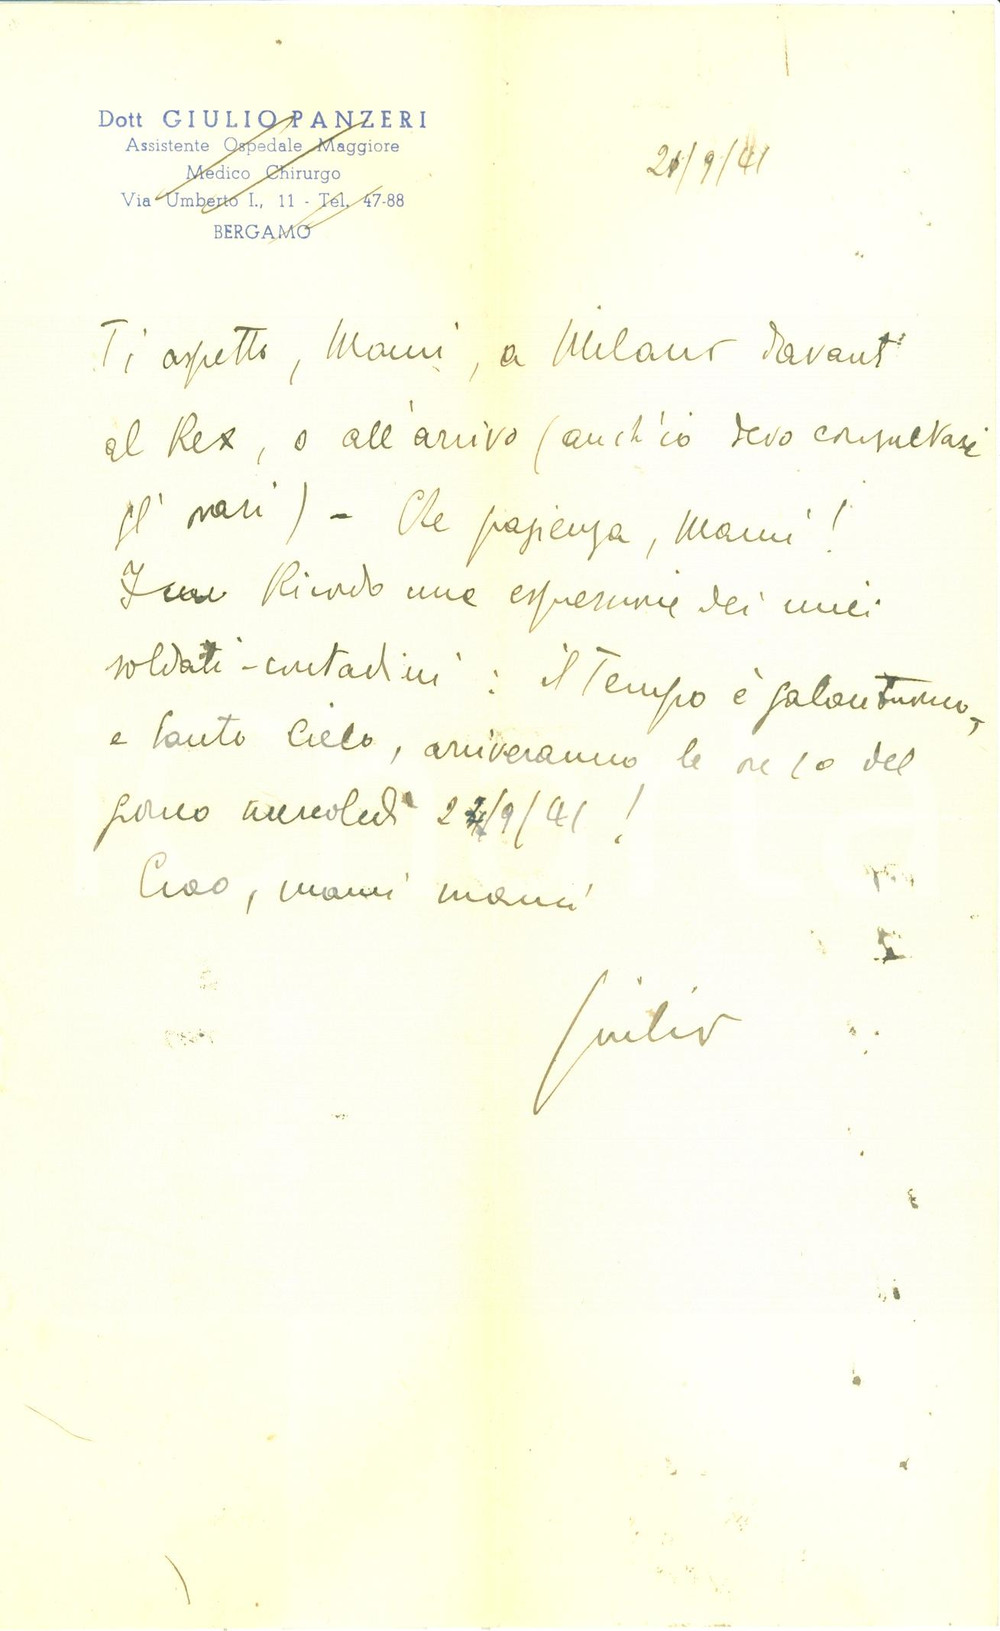 Dott GIULIO PANZERI
Assistente Ospedale Maggiore
Medico Chirurgo
Via Umberto I., 11 - Tel. 47-88
BERGAMO
21/9/41
Ti aspetto, Mami, a Milano davanti
al Rex, o all'arrivo (anch'io devo consultare
gli orari) - Che pazienza, Mami!
Ricordo una espressione dei miei
soldati-contadini: il Tempo è galantuomo,
e Santo Cielo, arriveranno le ore 10 del
giorno mercoledì 24/9/41!
Ciao, mami mami
Giulio